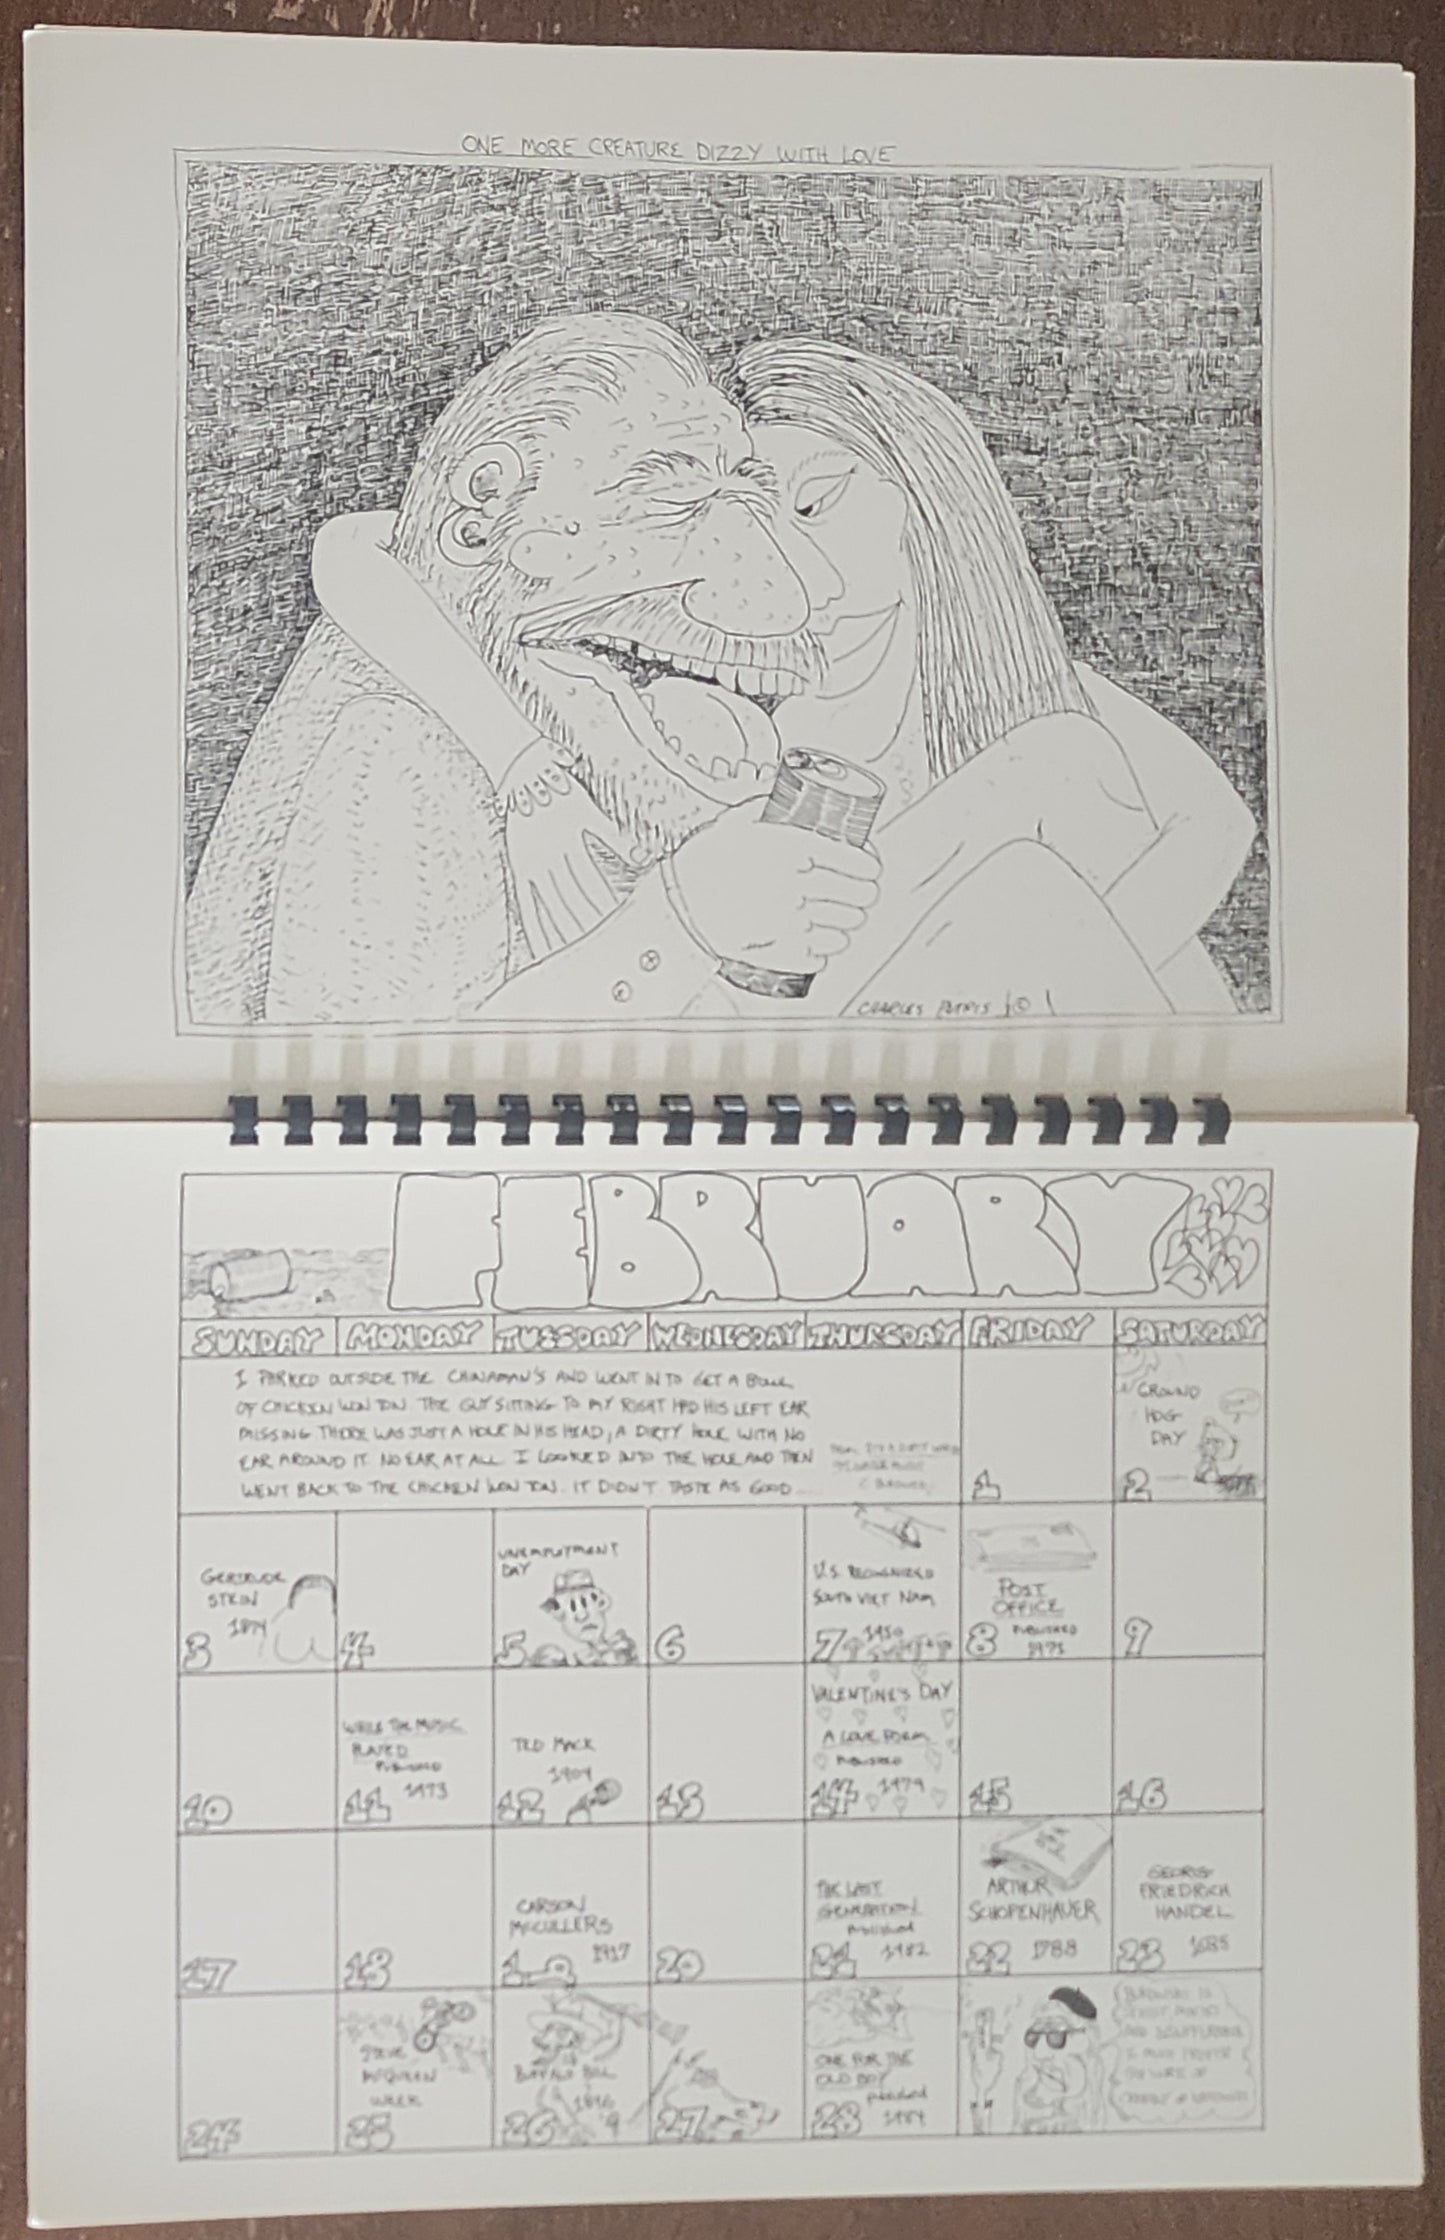 ONE MORE CREATURE DIZZY WITH LOVE
CHARLES
FEBRUARY
SUNDAY MONDAY TUESDAY WEDNESDAY THURSDAY FRIDAY SATURDAY
I PARKED OUTSIDE THE CHINAMAN'S AND WENT IN TO GET A BOWL
OF CHICKEN WON TON. THE GUY SITTING TO MY RIGHT HAD HIS LEFT EAR
MISSING THERE WAS JUST A HOLE IN HIS HEAD, A DIRTY HOLE WITH NO
EAR AROUND IT. NO EAR AT ALL. I LOOKED INTO THE HOLE AND THEN
WENT BACK TO THE CHICKEN WON TON. IT DIDN'T TASTE AS GOOD
1
GROUND
HOG
DAY
2
GERTRUDE
STEIN
1874
3
4
UNEMPLOYMENT
DAY
5
6
U.S. RECOGNIZED
SOUTH VIET NAM
1950
7
POST
OFFICE
PUBLISHED
1971
8
9
10
WHILE THE MUSIC
PLAYED
PUBLISHED
1973
11
TED MACK
1904
12
13
VALENTINE'S DAY
A LOVE POEM
PUBLISHED
1979
14
15
16
17
18
CARSON
McCULLERS
1917
19
20
THE LAST
GENERATION
PUBLISHED
1982
21
ARTHUR
SCHOPENHAUER
1788
22
GEORGE
FRIEDRICH
HANDEL
1685
23
24
STEVE
McQUEEN
WEEK
25
BUFFALO BILL
1846
26
27
ONE FOR THE
OLD BOY
PUBLISHED
1984
28
BUKOWSKI IS